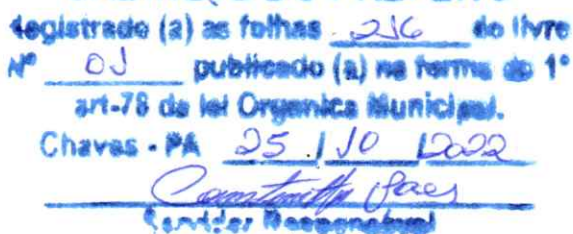 Registrado (a) as folhas 216 do livro
Nº 01 publicado (a) na forma do 1º
art-78 da lei Organica Municipal.
Chaves - PA 25 / 10 / 2022
Servidor Responsável